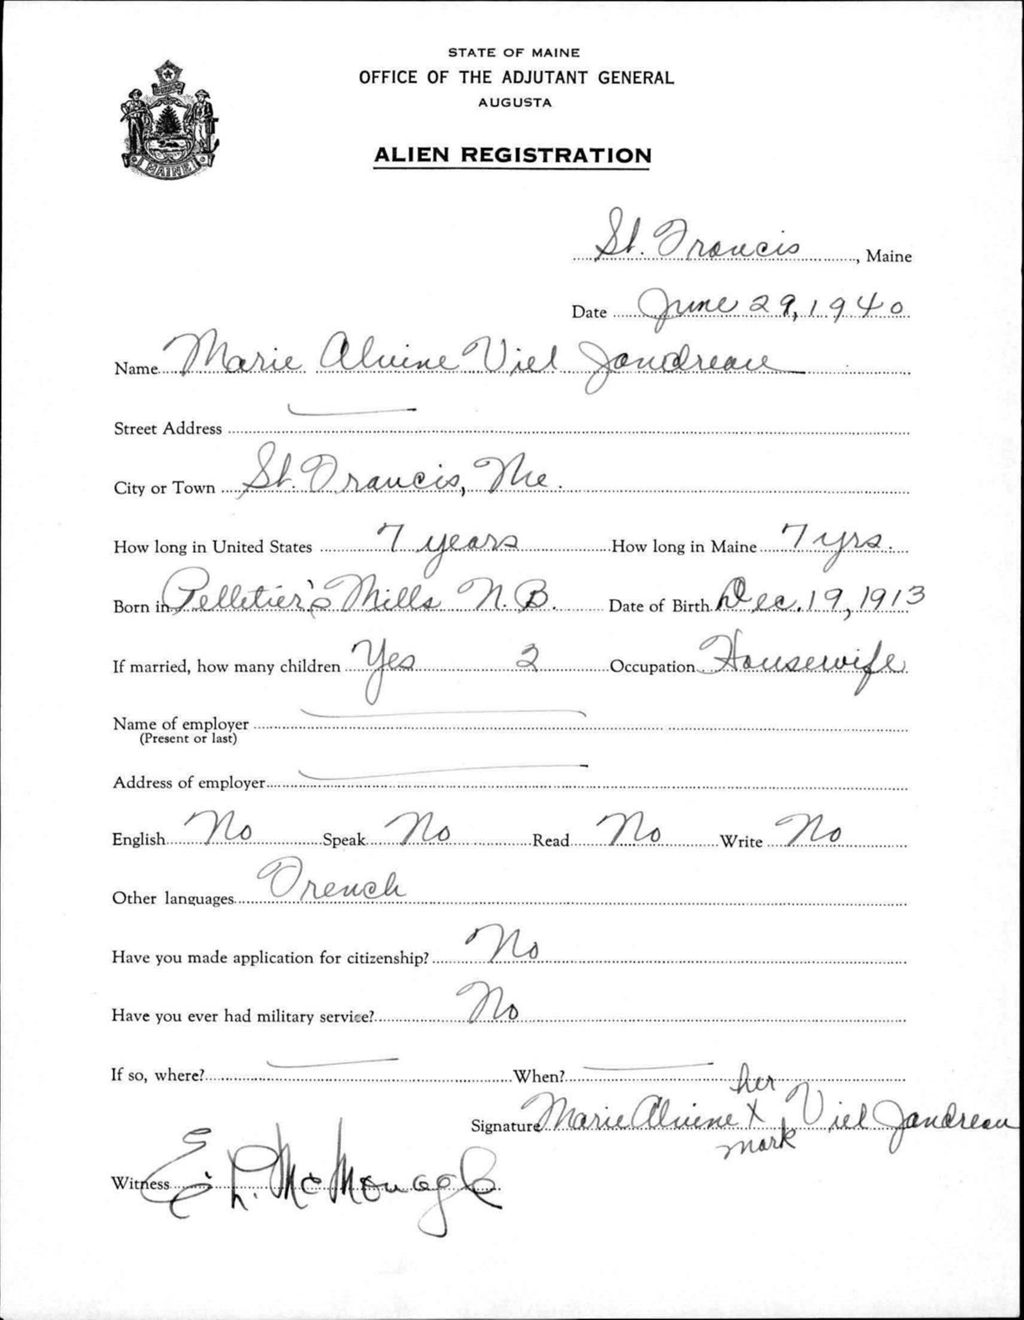 STATE OF MAINE
OFFICE OF THE ADJUTANT GENERAL
AUGUSTA
ALIEN REGISTRATION
MAINE
St. Francis, Maine
Date June 29, 1940
Name Marie Alvine Viel Jandreau
Street Address
City or Town St. Francis, Me.
How long in United States 7 years How long in Maine 7 yrs.
Born in Pelletier's Mills N.B. Date of Birth Dec. 19, 1913
If married, how many children Yes 2 Occupation Housewife
Name of employer
(Present or last)
Address of employer
English No Speak No Read No Write No
Other languages French
Have you made application for citizenship? No
Have you ever had military service? No
If so, where? When?
her
Signature Marie Alvine X Viel Jandreau
mark
Witness E. L. McMonagle